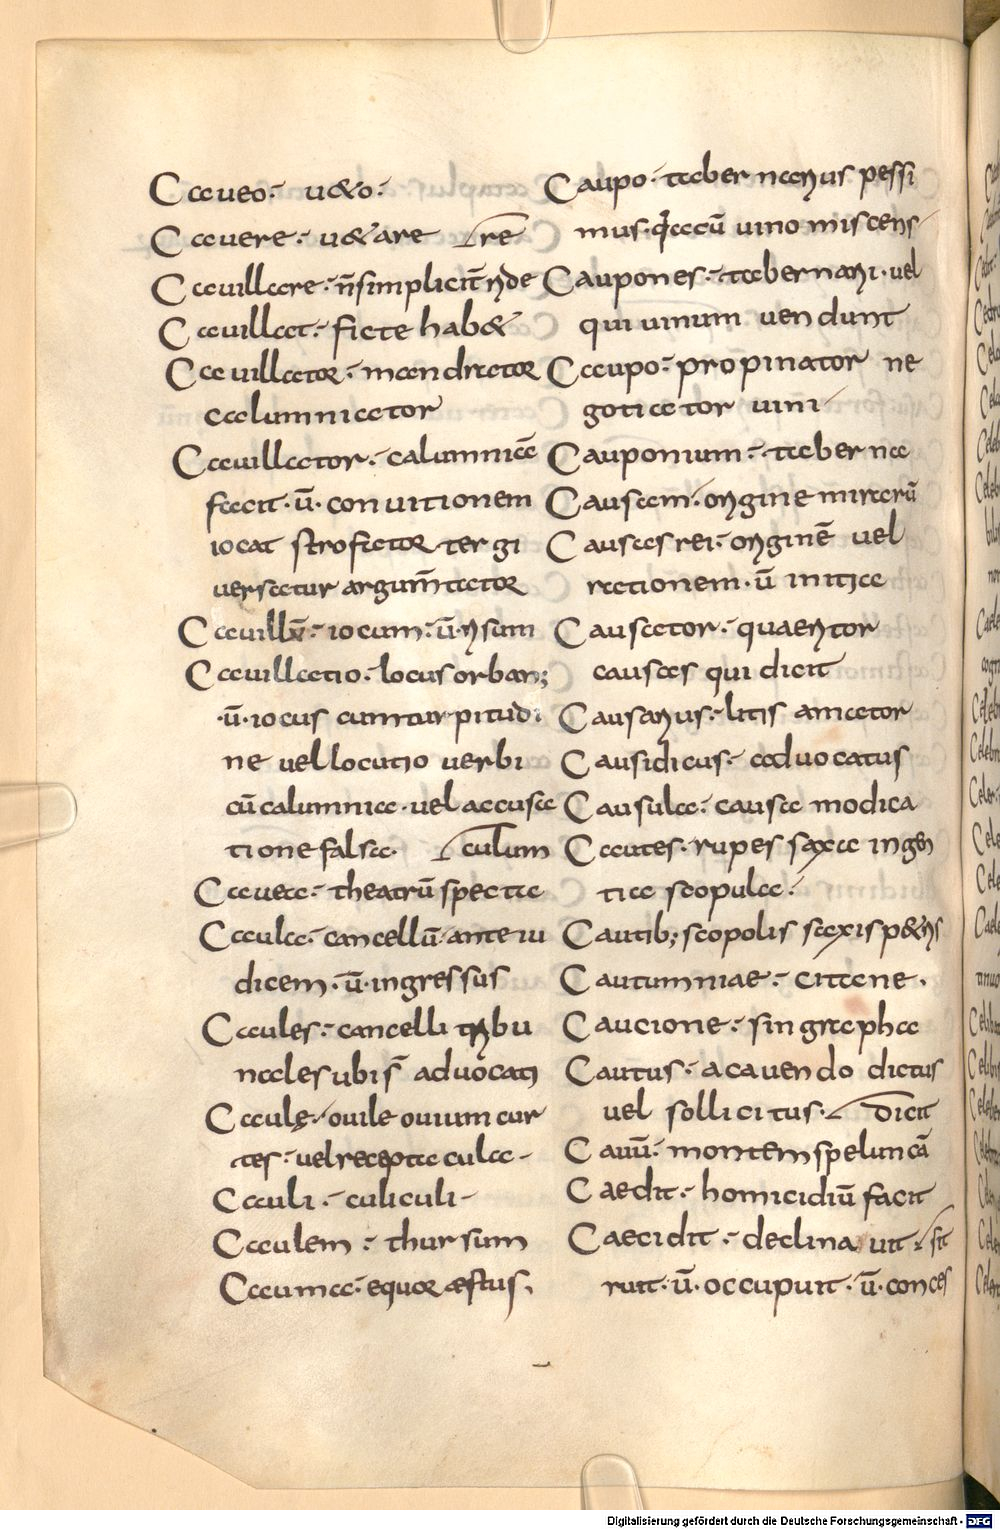 Caueo· u&o·
Cauere· u&are re̅
Cauillare· n̅simplicit̅ ride
Cauillat· ficte hab&
Cauillator· mandrator
calumniator
Cauillator· calumniā
facit· u̅· conuitionem
iocat strofator tergi
uersatur argum̅tator
Cauillū· iocum· u̅· risum
Cauillatio· locus orban;
·u̅· iocus cum turpitudi
ne uel locutio uerbi
cū calumnia· uel accusa
tione falsa· culum
Cauea· theatrū specta
Caula· cancellū ante iu
dicem· u̅· ingressus
Caules· cancelli tribu
nales ubi s̅ aduocati
Caulę· ouile ouium cor
tes· uel recepta cula·
Cauli· culiculi·
Caulem· thursum
Cauma· equor æstus·
Caupo· tabernarius pessi
mus· q̇ acū uino miscens
Caupones· tabernarii· uel
qui uinum uendunt
Caupo· propinator ne
gotiator uini
Cauponum· taberna
Causam· origine mirarū
Causas rei· originē uel
rationem· u̅ initia
Causator· quaeritor
causas qui dicit
Causarius· litis amator
Causidicus· aduocatus
Causula· causa modica
Cautes· rupes saxa ingen
tia scopula·
Cautib; scopolis saxis p&ris
Cautumniae· citane·
Caucione· singrapha
Cautus· a cauendo dictus
uel sollicitus· dicit
Cauū· montem speluncā
Caedit· homicidiū facit
Caecidit· declinauit· sit
ruit· u̅· occupuit· u̅· conces
Digitalisierung gefördert durch die Deutsche Forschungsgemeinschaft - DFG